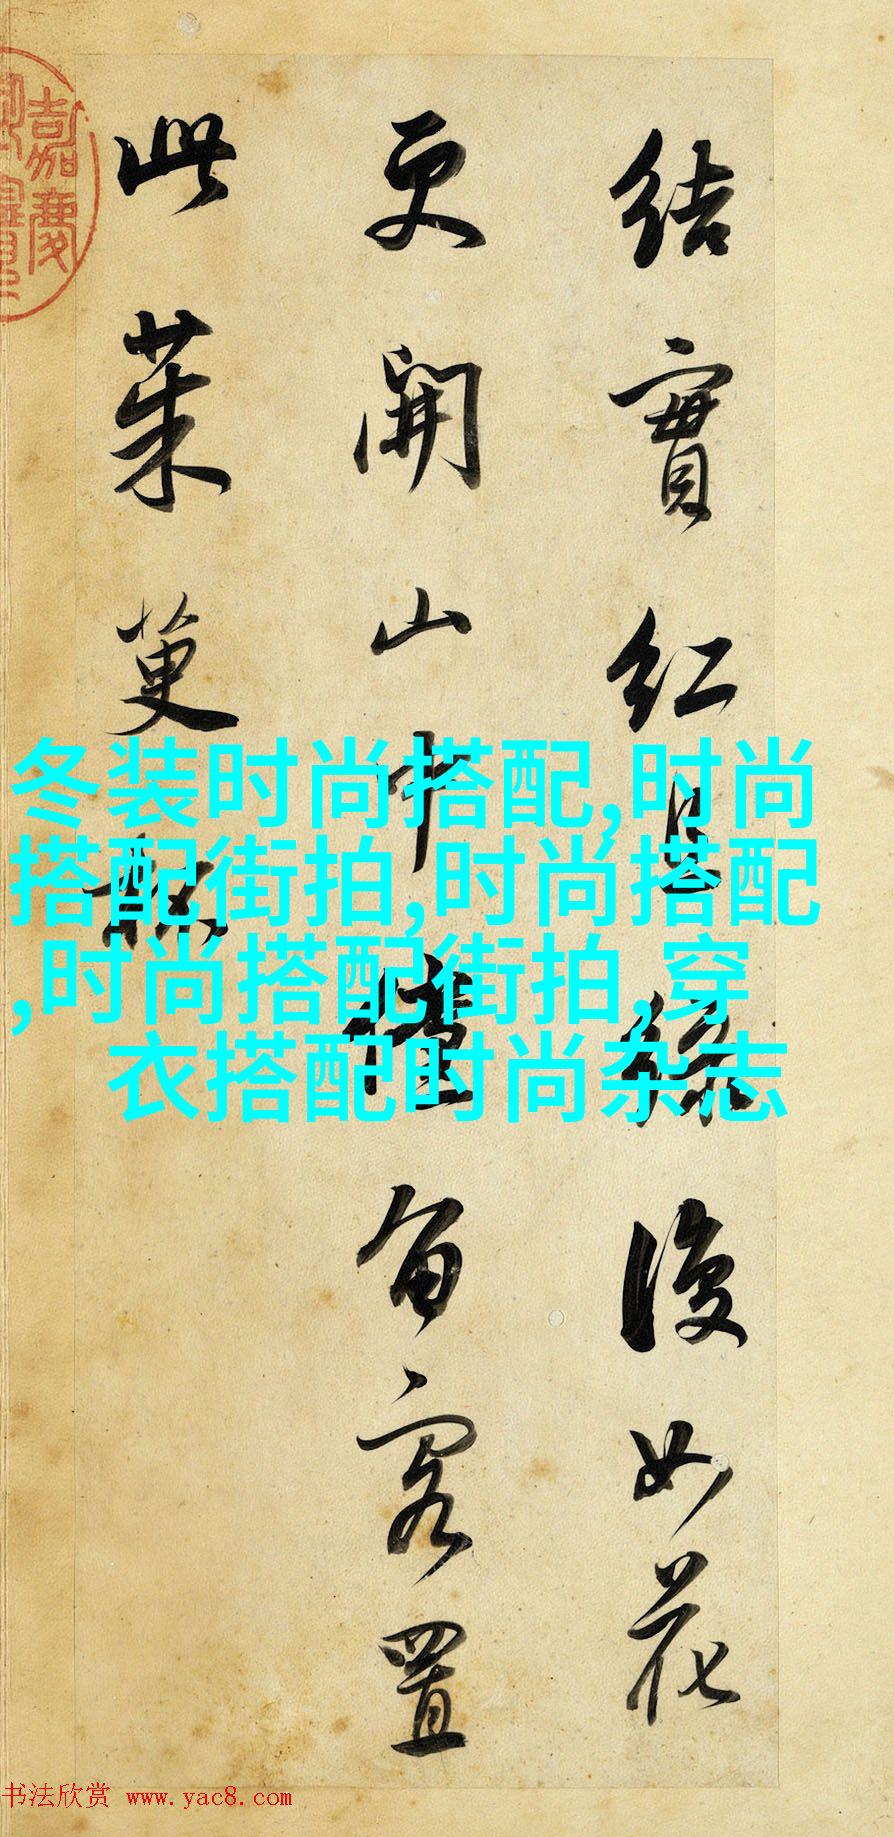 結實紅且綠復如花
更開山中儻留客置
此茱萸杯
嘉慶
冬装时尚搭配,时尚
搭配街拍,时尚搭配
,时尚搭配街拍,穿
衣搭配时尚杂志
书法欣赏 www.yac8.com